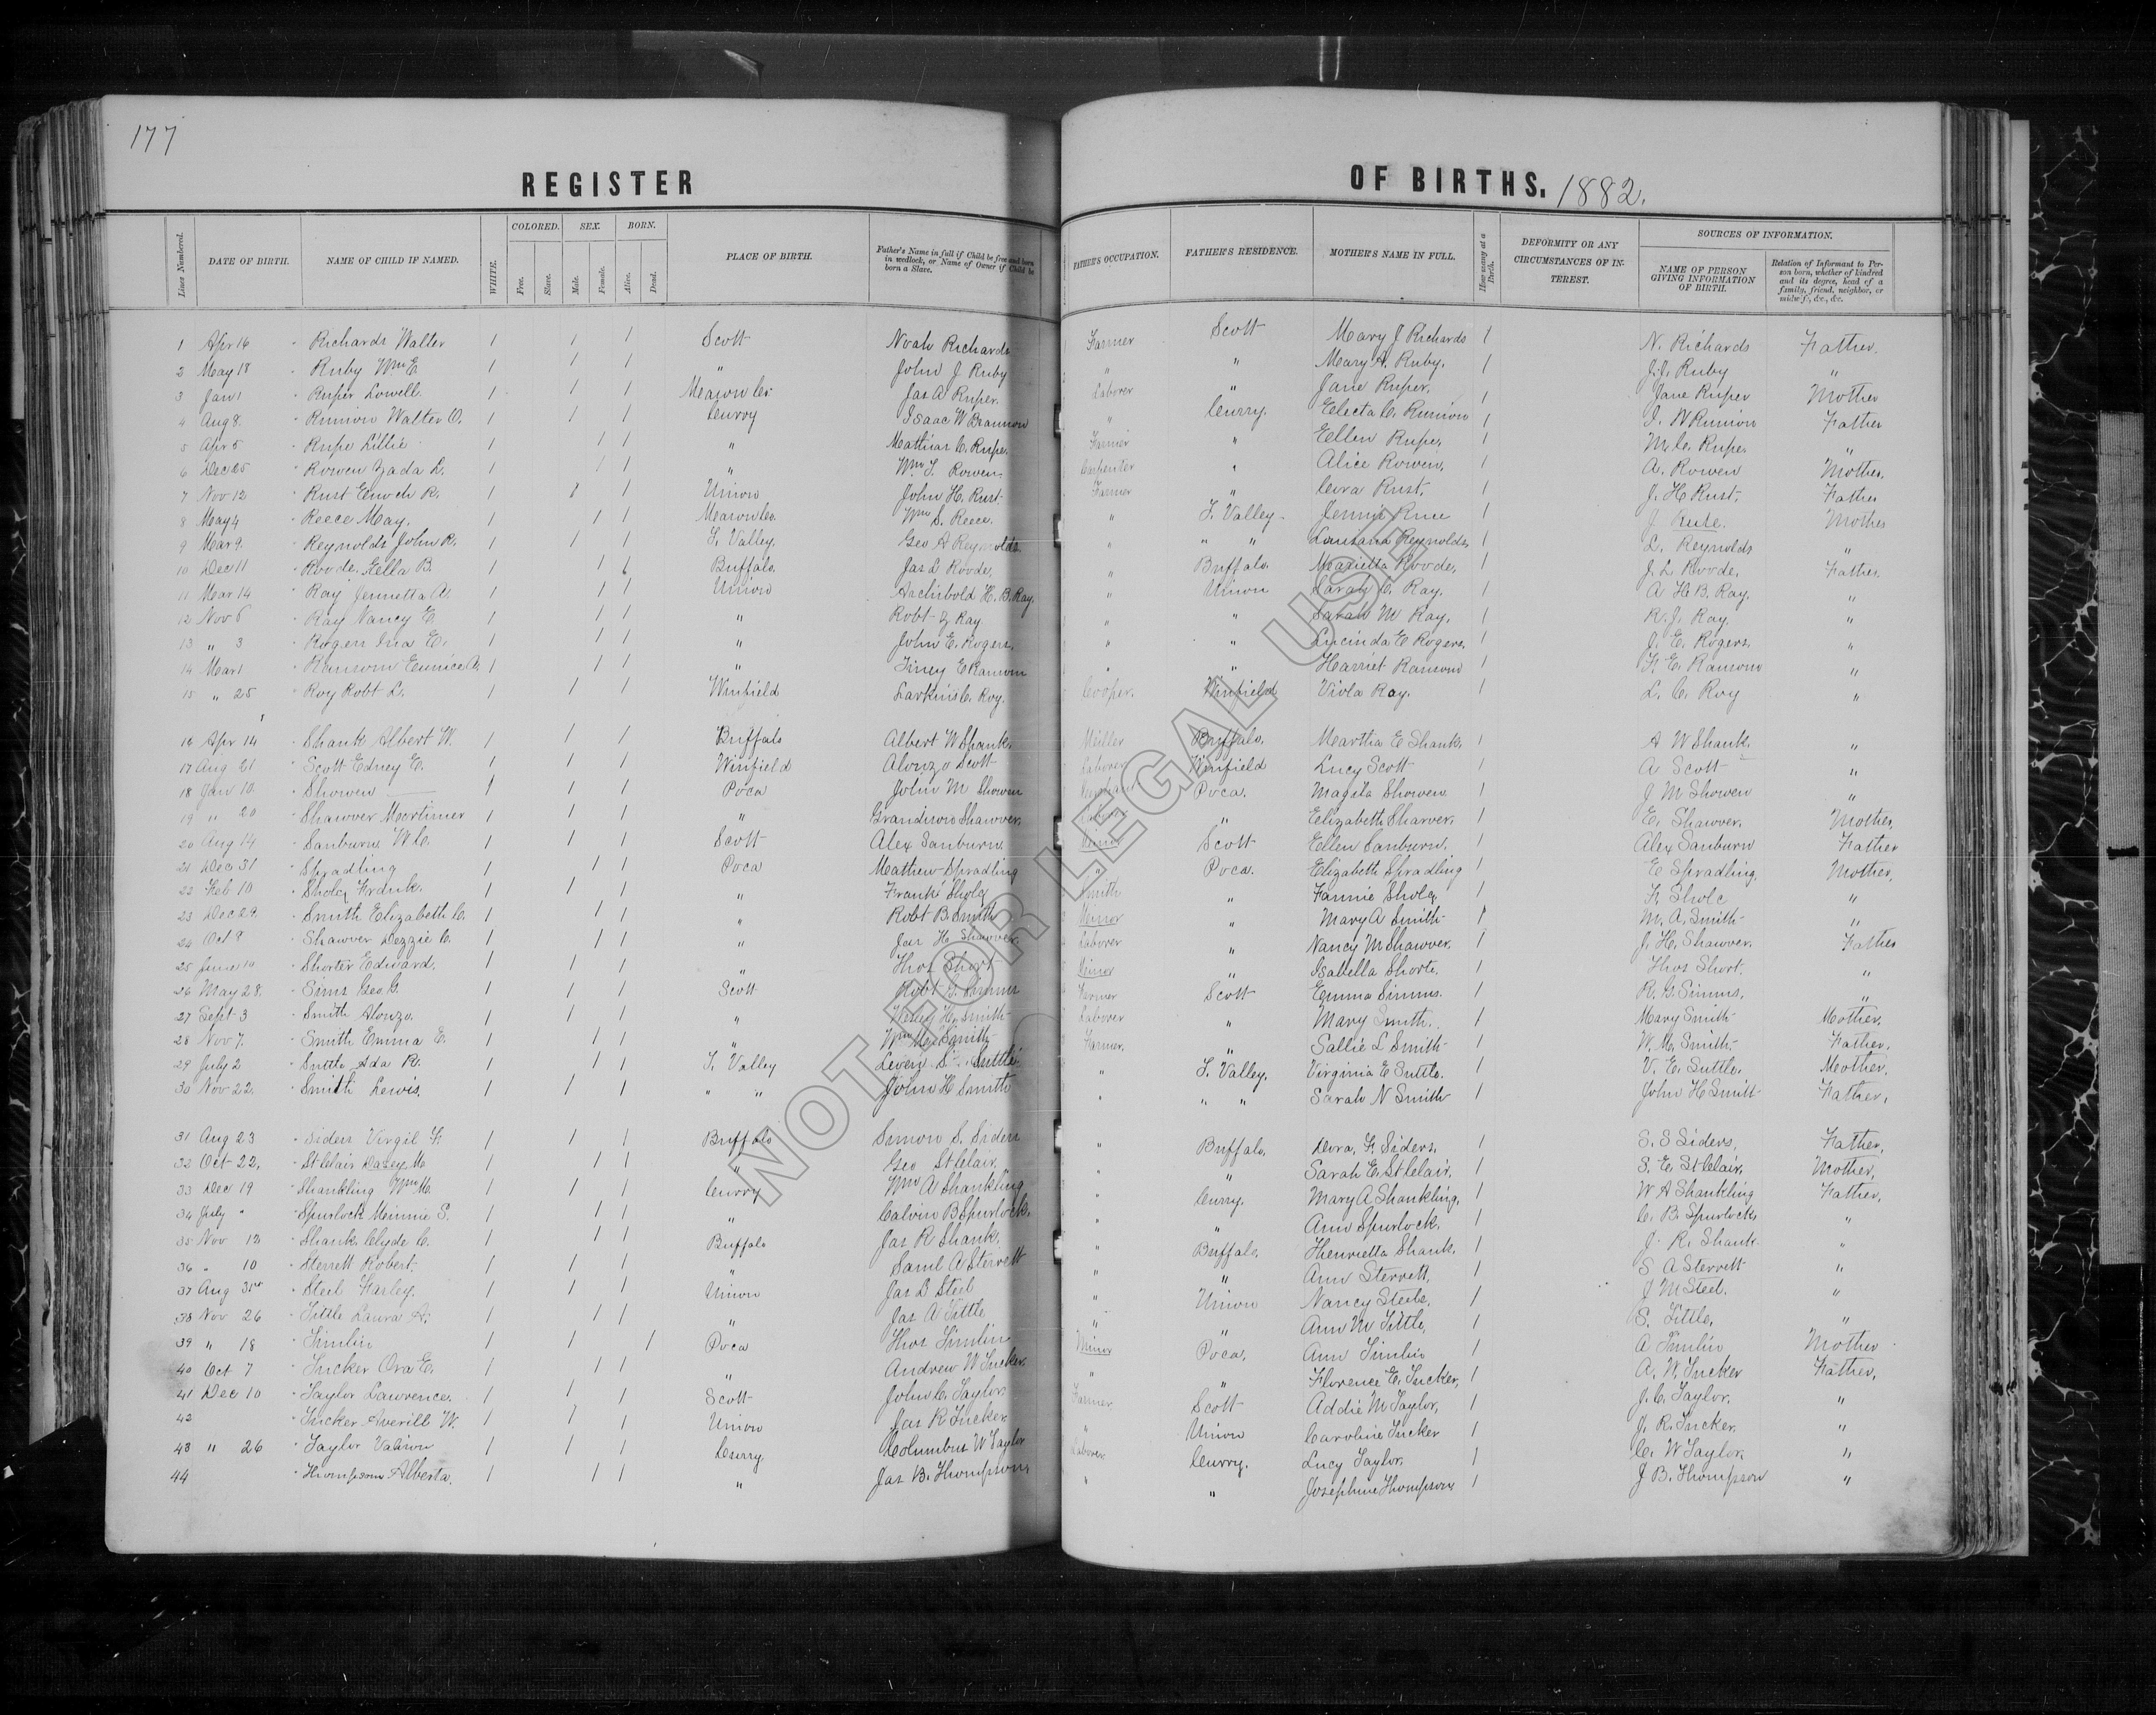 177
REGISTER OF BIRTHS. 1882.
Lines Numbered. DATE OF BIRTH. NAME OF CHILD IF NAMED. WHITE. COLORED. Free. Slave. SEX. Male. Female. BORN. Alive. Dead. PLACE OF BIRTH. Father's Name in full if Child be free and born in wedlock, or Name of Owner if Child be born a Slave. FATHER'S OCCUPATION. FATHER'S RESIDENCE. MOTHER'S NAME IN FULL. How many at a Birth. DEFORMITY OR ANY CIRCUMSTANCES OF INTEREST. SOURCES OF INFORMATION. NAME OF PERSON GIVING INFORMATION OF BIRTH. Relation of Informant to Person born, whether of kindred and its degree, head of a family, friend, neighbor, or midwife, &c., &c.
1 Apr 16 " Richards Walter 1 1 1 Scott Noah Richards Farmer Scott Mary J Richards 1 N. Richards Father.
2 May 18 " Ruby Wm E 1 1 1 " John J Ruby " " Mary A. Ruby. 1 J. J. Ruby "
3 Jan 1 " Ruper Lowell. 1 1 1 Mason Co. Jas A Ruper. Laborer " Jane Ruper. 1 Jane Ruper Mother
4 Aug 8. " Runion Walter O. 1 1 1 Curry Isaac W Brannon " Curry. Electa C. Runion 1 J. N Runion Father
5 Apr 5 " Rupe Lillie 1 1 1 " Mathias C. Rupe. Farmer " Eellen Rupe. 1 M. C. Rupe. "
6 Dec 25 " Rowen Zada L. 1 1 1 " Wm T. Rowen Carpenter " Alice Rowen. 1 A. Rowen Mother.
7 Nov 12 " Rust Enoch R. 1 1 1 Union John H. Rust. Farmer " Cora Rust. 1 J. H Rust. Father
8 May 4 " Reece May. 1 1 1 Mason Co. Wm S. Reece. " T. Valley. Jennie 1 J. Mother
9 Mar 9. " Reynolds John R. 1 1 1 T. Valley. Geo A Reynolds " " " Louisana Reynolds 1 L. Reynolds "
10 Dec 11 " Roode. Eella B. 1 1 1 Buffalo. Jas L Roode. " Buffalo. Marietta Roode. 1 J. L. Roode. Father.
11 Mar 14 " Ray Jennetta A. 1 1 1 Union Archibold H. B. Ray. " Union Sarah C. Ray. 1 A H B. Ray. "
12 Nov 6 " Ray Nancy E. 1 1 1 " Robt J Ray " " Sarah M Ray. 1 R. J. Ray. "
13 " 3 " Rogers Ina E. 1 1 1 " John E. Rogers. " " Lucinda E Rogers. 1 J. E. Rogers. "
14 Mar 1 " Ransom Eunice A. 1 1 1 " Finey E Ransom " " Harriet Ransom 1 F. E. Ransom "
15 " 25 " Roy Robt L. 1 1 1 Winfield Larkins C. Roy. Cooper. Winfield Viola Roy. 1 L. C. Roy "
16 Apr 14 " Shank Albert W. 1 1 1 Buffalo Albert W Shank. Miller Buffalo. Martha E Shank. 1 A W Shank. "
17 Aug 21 " Scott Edney E. 1 1 1 Winfield Alonzo Scott Laborer Winfield Lucy Scott 1 A Scott "
18 Jan 10. " Showen 1 1 1 Poca John M Showen Poca. Magita Showen 1 J M Showen "
19 " 20 " Shawver Mortimer 1 1 1 " Grandison Shawver. Laborer " Eelizabeth Sharver. 1 E. Shawver. Mother,
20 Aug 14 " Sanburn W C. 1 1 1 Scott Alex Sanburn. Minor Scott Ellen Sanburn. 1 Alex Sanburn Father
21 Dec 31 " Spradling 1 1 1 Poca Mathew Spradling " Poca. Elizabeth Spradling 1 E Spradling. Mother,
22 Feb 10 " Frank. 1 1 1 " Frank Smith " Fannie 1 F. "
23 Dec 29. " Smith Elizabeth C. 1 1 1 " Robt B. Smith Minor " Mary A Smith 1 M. A. Smith "
24 Oct 9 " Shawver Dezzie C. 1 1 1 " Jas H Shawver. Laborer " Nancy M Shawver. 1 J. H. Shawver. Father
25 June 10 " Shorter Edward. 1 1 1 " Thos Short Minor " Isabella Short. 1 Thos Short. "
26 May 28. " Sims Geo. G. 1 1 1 Scott Robt G. Simms Farmer Scott Emma Simms. 1 R. G. Simms. "
27 Sept 3 " Smith Alonzo. 1 1 1 " Wesley H. Smith Laborer " Mary Smith. 1 Mary Smith Mother.
28 Nov 7. " Smith Emma E. 1 1 1 " Wm M. Smith Farmer. " Sallie L Smith 1 W. M. Smith. Father.
29 July 2 " Suttle Ada R. 1 1 1 T. Valley Leven S. Suttle " T. Valley. Virginia E Suttle. 1 V. E. Suttle. Mother.
30 Nov 22. " Smith Lewis. 1 1 1 " " John H Smith " " " Sarah N Smith 1 John H Smith Father.
31 Aug 23 " Siders Virgil F 1 1 1 Buffalo Simon S. Siders " Buffalo. Dora. F. Siders. 1 S. S Siders, Father,
32 Oct 22. " St Clair Dasey M 1 1 1 " Geo St Clair. " " Sarah E. St Clair. 1 S. E. St Clair, Mother,
33 Dec 19 " Shankling Wm M. 1 1 1 Curry Wm A Shankling " Curry. Mary A Shankling. 1 W A Shankling Father,
34 July " " Spurlock Minnie S. 1 1 1 " Calvin B Spurlock. " " Ann Spurlock. 1 C. B. Spurlock "
35 Nov 12 " Shank Clyde C. 1 1 1 Buffalo Jas R Shank. " Buffalo, Henrietta Shank. 1 J. R. Shank "
36 " 10 " Sterrett Robert. 1 1 1 " Saml A Sterrett " " Ann Sterrett, 1 S A Sterrett "
37 Aug 31st " Steel Harley. 1 1 1 Union Jas D Steel " Union Nancy Steele. 1 J M Steel. "
38 Nov 26 " Tittle Laura A. 1 1 1 " Jas A Tittle " " Ann M Tittle, 1 S. Tittle. "
39 " 18 " Timlin 1 1 1 Poca Thos Timlin Minor Poca, Ann Timlin 1 A Timlin Mother
40 Oct 7 " Tucker Ora E. 1 1 1 " Andrew W Tucker. " " Florence E. Tucker, 1 A. W. Tucker Father,
41 Dec 10 " Taylor Lawrence. 1 1 1 Scott John C. Taylor Farmer Scott Addie M Taylor, 1 J. C. Taylor. "
42 " Tucker Averill W. 1 1 1 Union Jas R Tucker " Union Caroline Tucker 1 J. R. Tucker. "
43 " 26 " Taylor 1 1 1 Curry Columbus W Taylor Laborer Curry. Lucy Taylor. 1 C. W Taylor, "
44 " Thompson Alberta. 1 1 1 " Jas B. Thompson, " " Josephine Thompson 1 J B. Thompson "
NOT FOR LEGAL USE